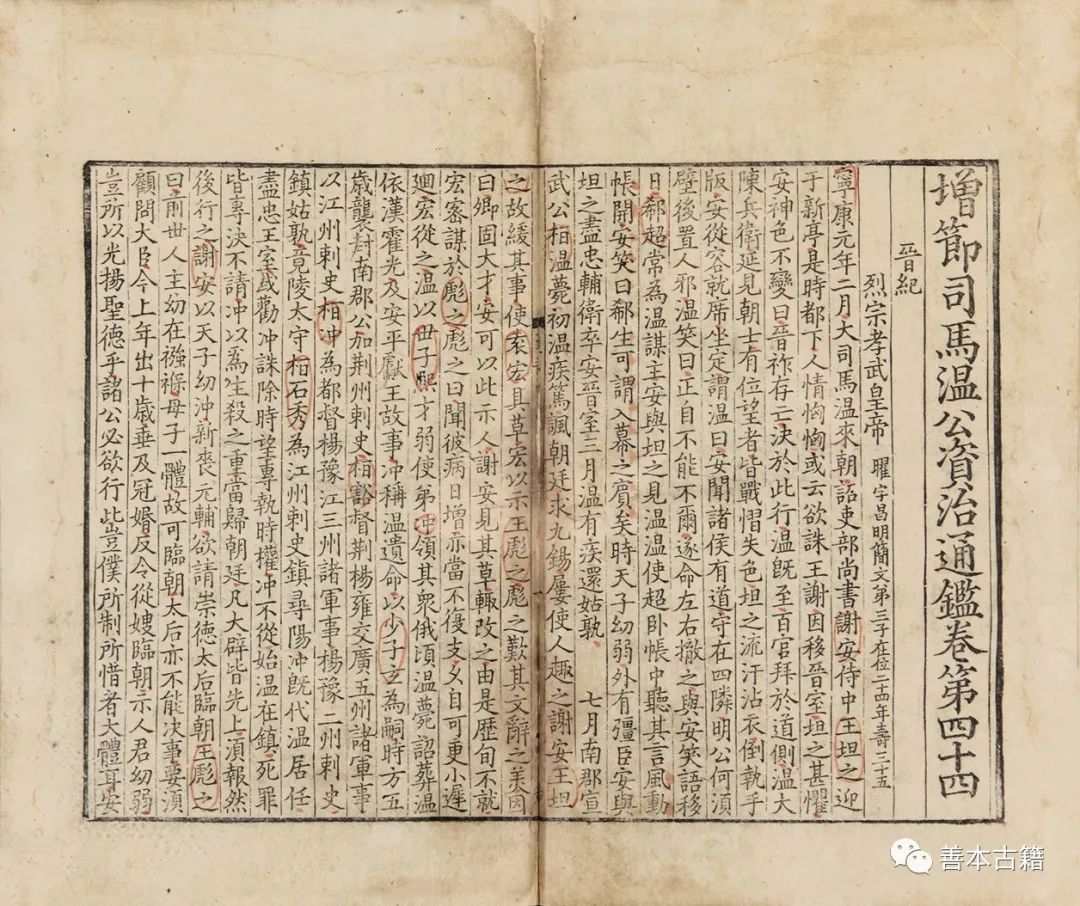 增節司馬温公資治通鑑卷第四十四
晉紀
烈宗孝武皇帝 曜字昌明簡文第三子在位二十四年壽三十五
寧康元年二月大司馬温來朝詔吏部尚書謝安侍中王坦之迎
于新亭是時都下人情恟恟或云欲誅王謝因移晉室坦之甚懼
安神色不變曰晉祚存亡決於此行温既至百官拜於道側温大
陳兵衛延見朝士有位望者皆戰慴失色坦之流汗沾衣倒執手
版安從容就席坐定謂温曰安聞諸侯有道守在四隣明公何湏
壁後置人邪温笑曰正自不能不爾遂命左右撤之與安笑語移
日郗超常為温謀主安與坦之見温温使超卧帳中聽其言風動
帳開安笑曰郗生可謂入幕之賓矣時天子幼弱外有彊臣安與
坦之盡忠輔衛卒安晉室三月温有疾還姑孰 七月南郡宣
武公桓温薨初温疾篤諷朝廷求九錫屢使人趣之謝安王坦
之故緩其事使袁宏具草宏以示王彪之彪之歎其文辭之美因
曰卿固大才安可以此示人謝安見其草輙改之由是歷旬不就
宏宻謀於彪之彪之曰聞彼病日增亦當不復支久自可更小遲
廻宏從之温以世子熈才弱使弟沖領其衆俄頃温薨詔葬温
依漢霍光及安平獻王故事沖稱温遺命以少子玄為嗣時方五
歲襲封南郡公加荆州刺史桓豁督荆楊雍交廣五州諸軍事
以江州刺史桓沖為都督楊豫江三州諸軍事楊豫二州刺史
鎮姑孰竟陵太守桓石秀為江州刺史鎮尋陽沖既代温居任
盡忠王室或勸沖誅除時望專執時權沖不從始温在鎮死罪
皆專決不請沖以為生殺之重當歸朝廷凡大辟皆先上湏報然
後行之謝安以天子幼沖新喪元輔欲請崇德太后臨朝王彪之
曰前世人主幼在襁褓母子一體故可臨朝太后亦不能決事要湏
顧問大臣今上年出十歲垂及冠婚反令從嫂臨朝示人君幼弱
豈所以光揚聖德乎諸公必欲行此豈僕所制所惜者大體耳安
善本古籍